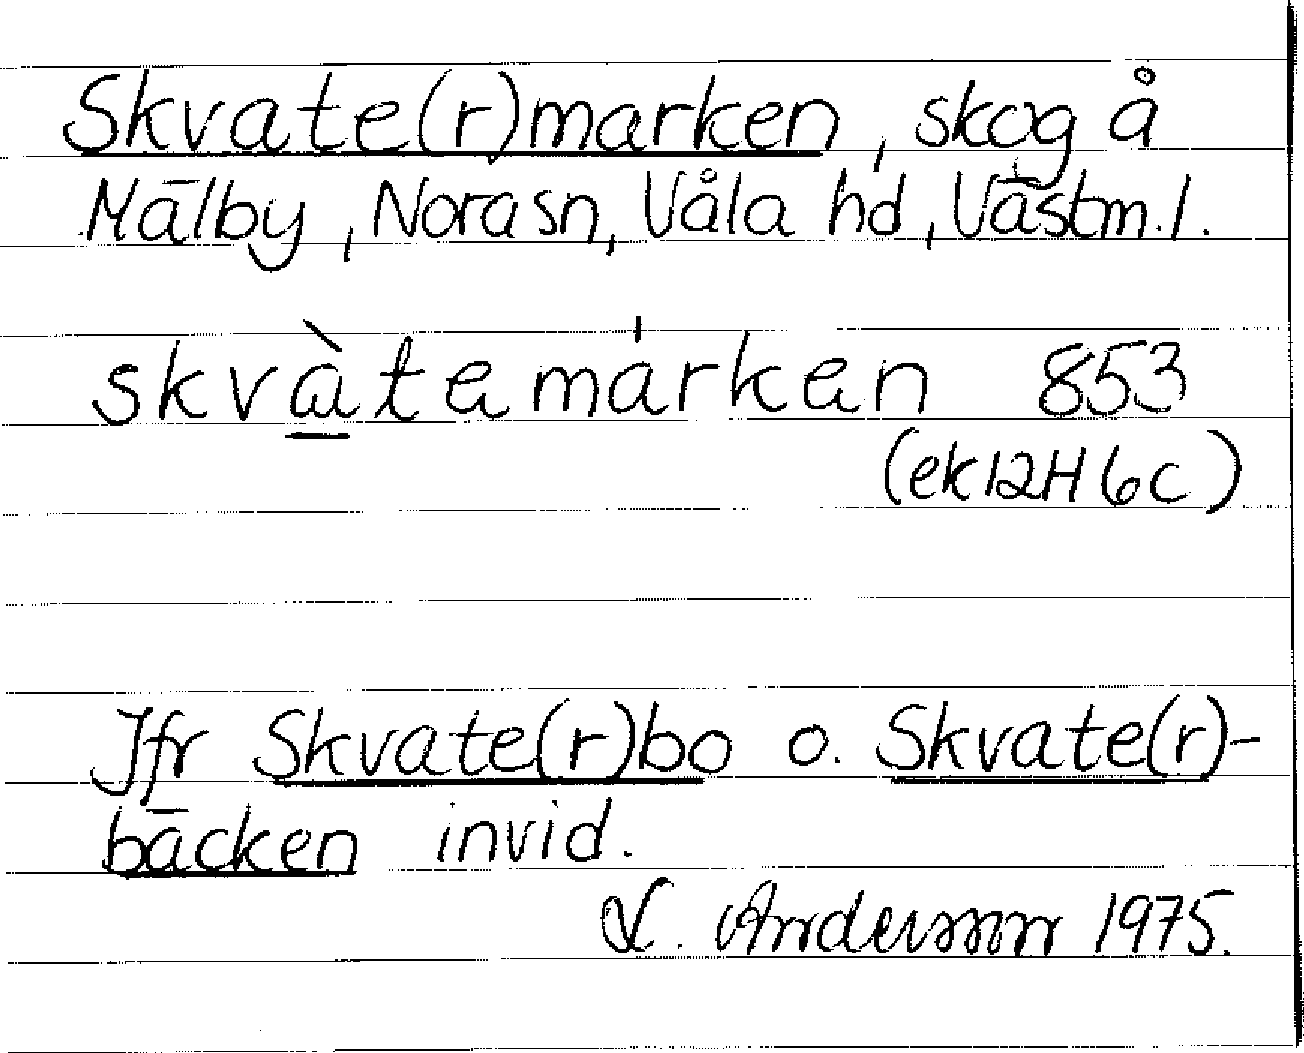 Skvate(r)marken, skog å
Mälby, Nora sn, Våla hd, Västm. l.
skvàtemárken 853
(ek 12H 6c)
Jfr Skvate(r)bo o. Skvate(r)-
bäcken invid.
L. Andersson 1975.